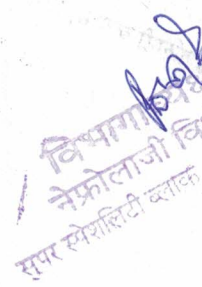 विभागाध्यक्ष
नेफ्रोलाजी वि
सुपर स्पेशलिटी ब्लाक